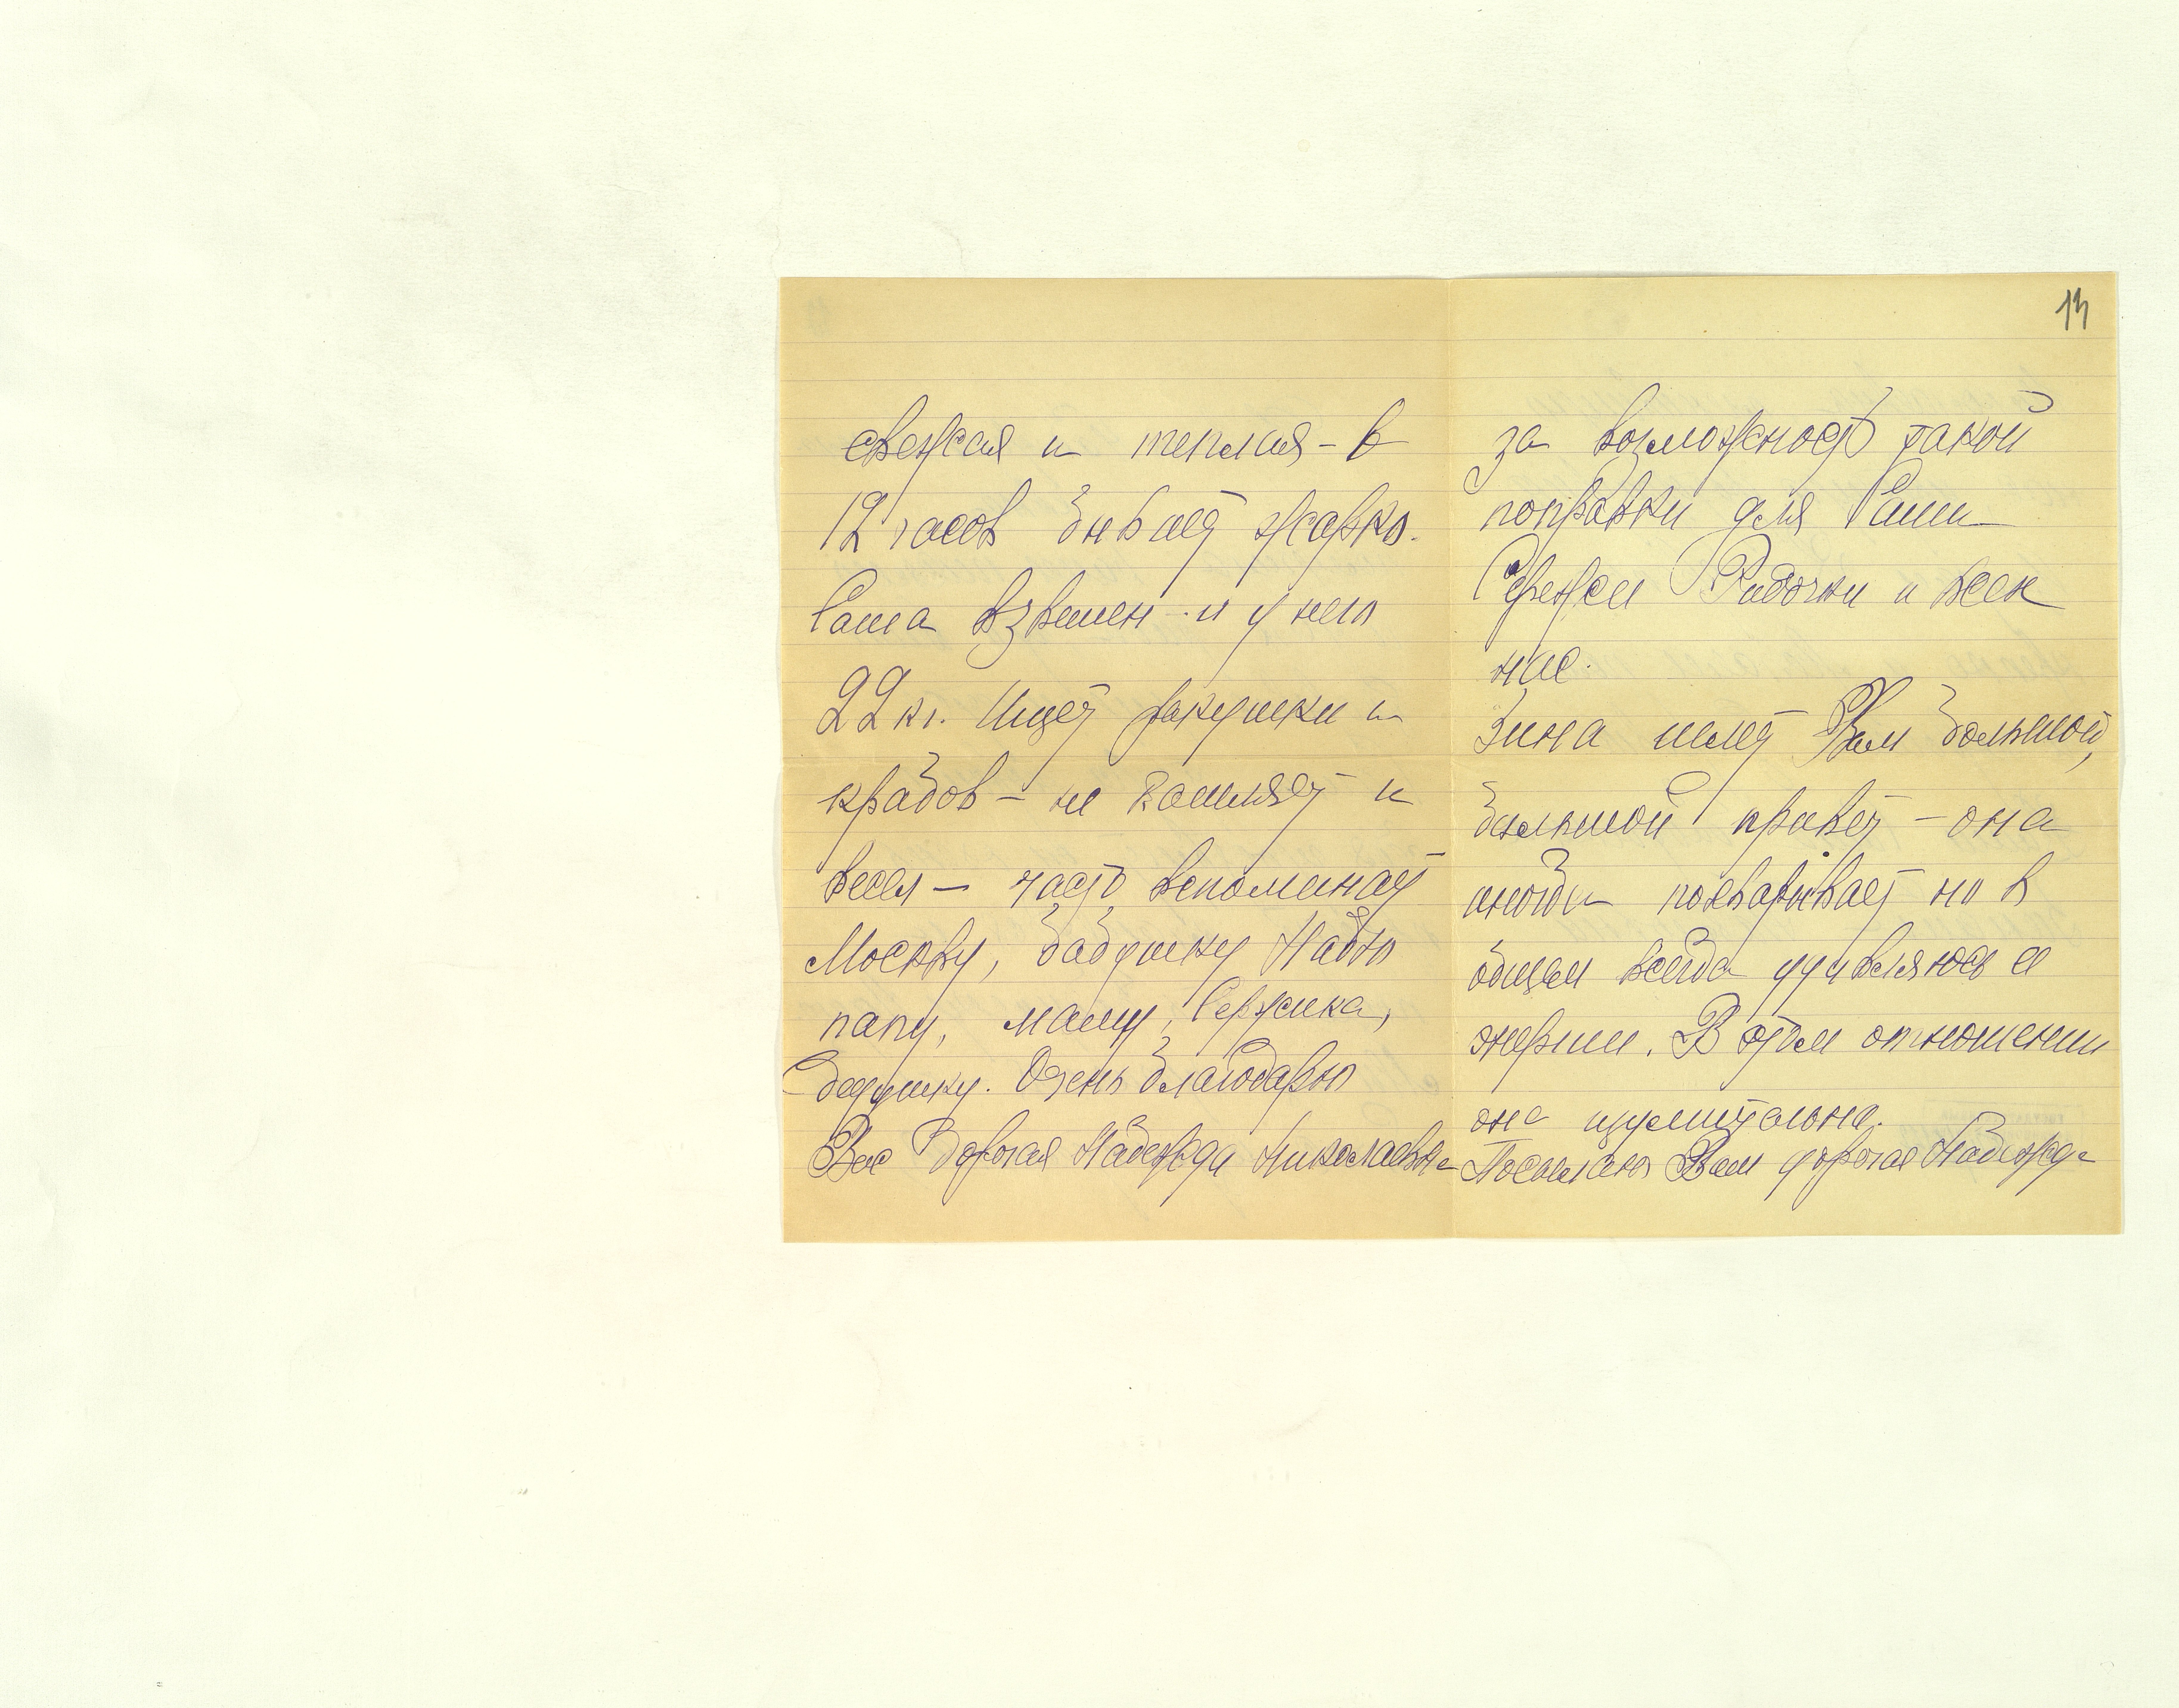 13
свежая и теплая – в
12 часов бывает жарко.
Саша взвешен – и у него
22 кг. Ищет ракушки и
крабов – не кашляет и
весел – часто вспоминает
Москву, бабушку Надю
папу, маму, Сержика,
дедушку. Очень благодарю
Вас дорогая Надежда Николаевна
за возможность такой
поправки для Саши
Сережи Радочки и всех
нас.
Зина шлет Вам большой,
большой привет – она
иногда похварывает но в
общем всегда удивляюсь ее
энергии. В этом отношении
она изумительна.
Посылаю Вам дорогая Надежда